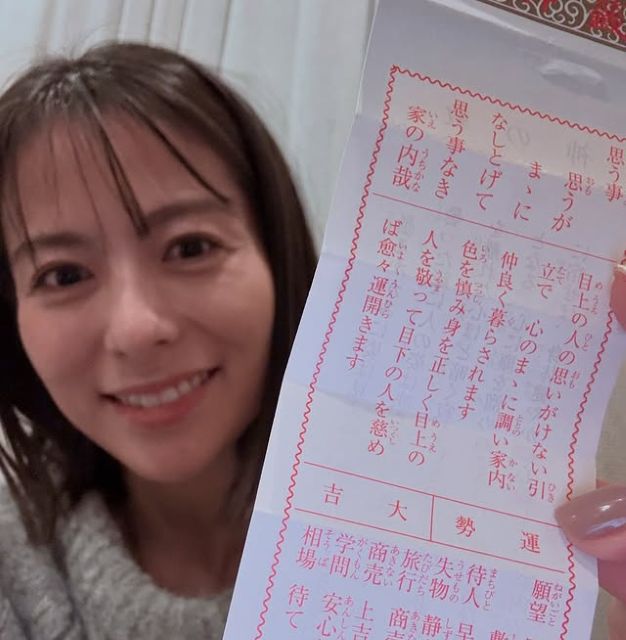 思う事
思うが
まゝに
なしとげて
思う事なき
家の内哉
目上の人の思いがけない引
立で 心のまゝに調い家内
仲良く暮らされます
色を慎み身を正しく目上の
人を敬って目下の人を慈め
ば愈々運開きます
運勢
大吉
願望
待人
失物
旅行
商売
学問
相場
早
静
商売
上吉
安心
待て